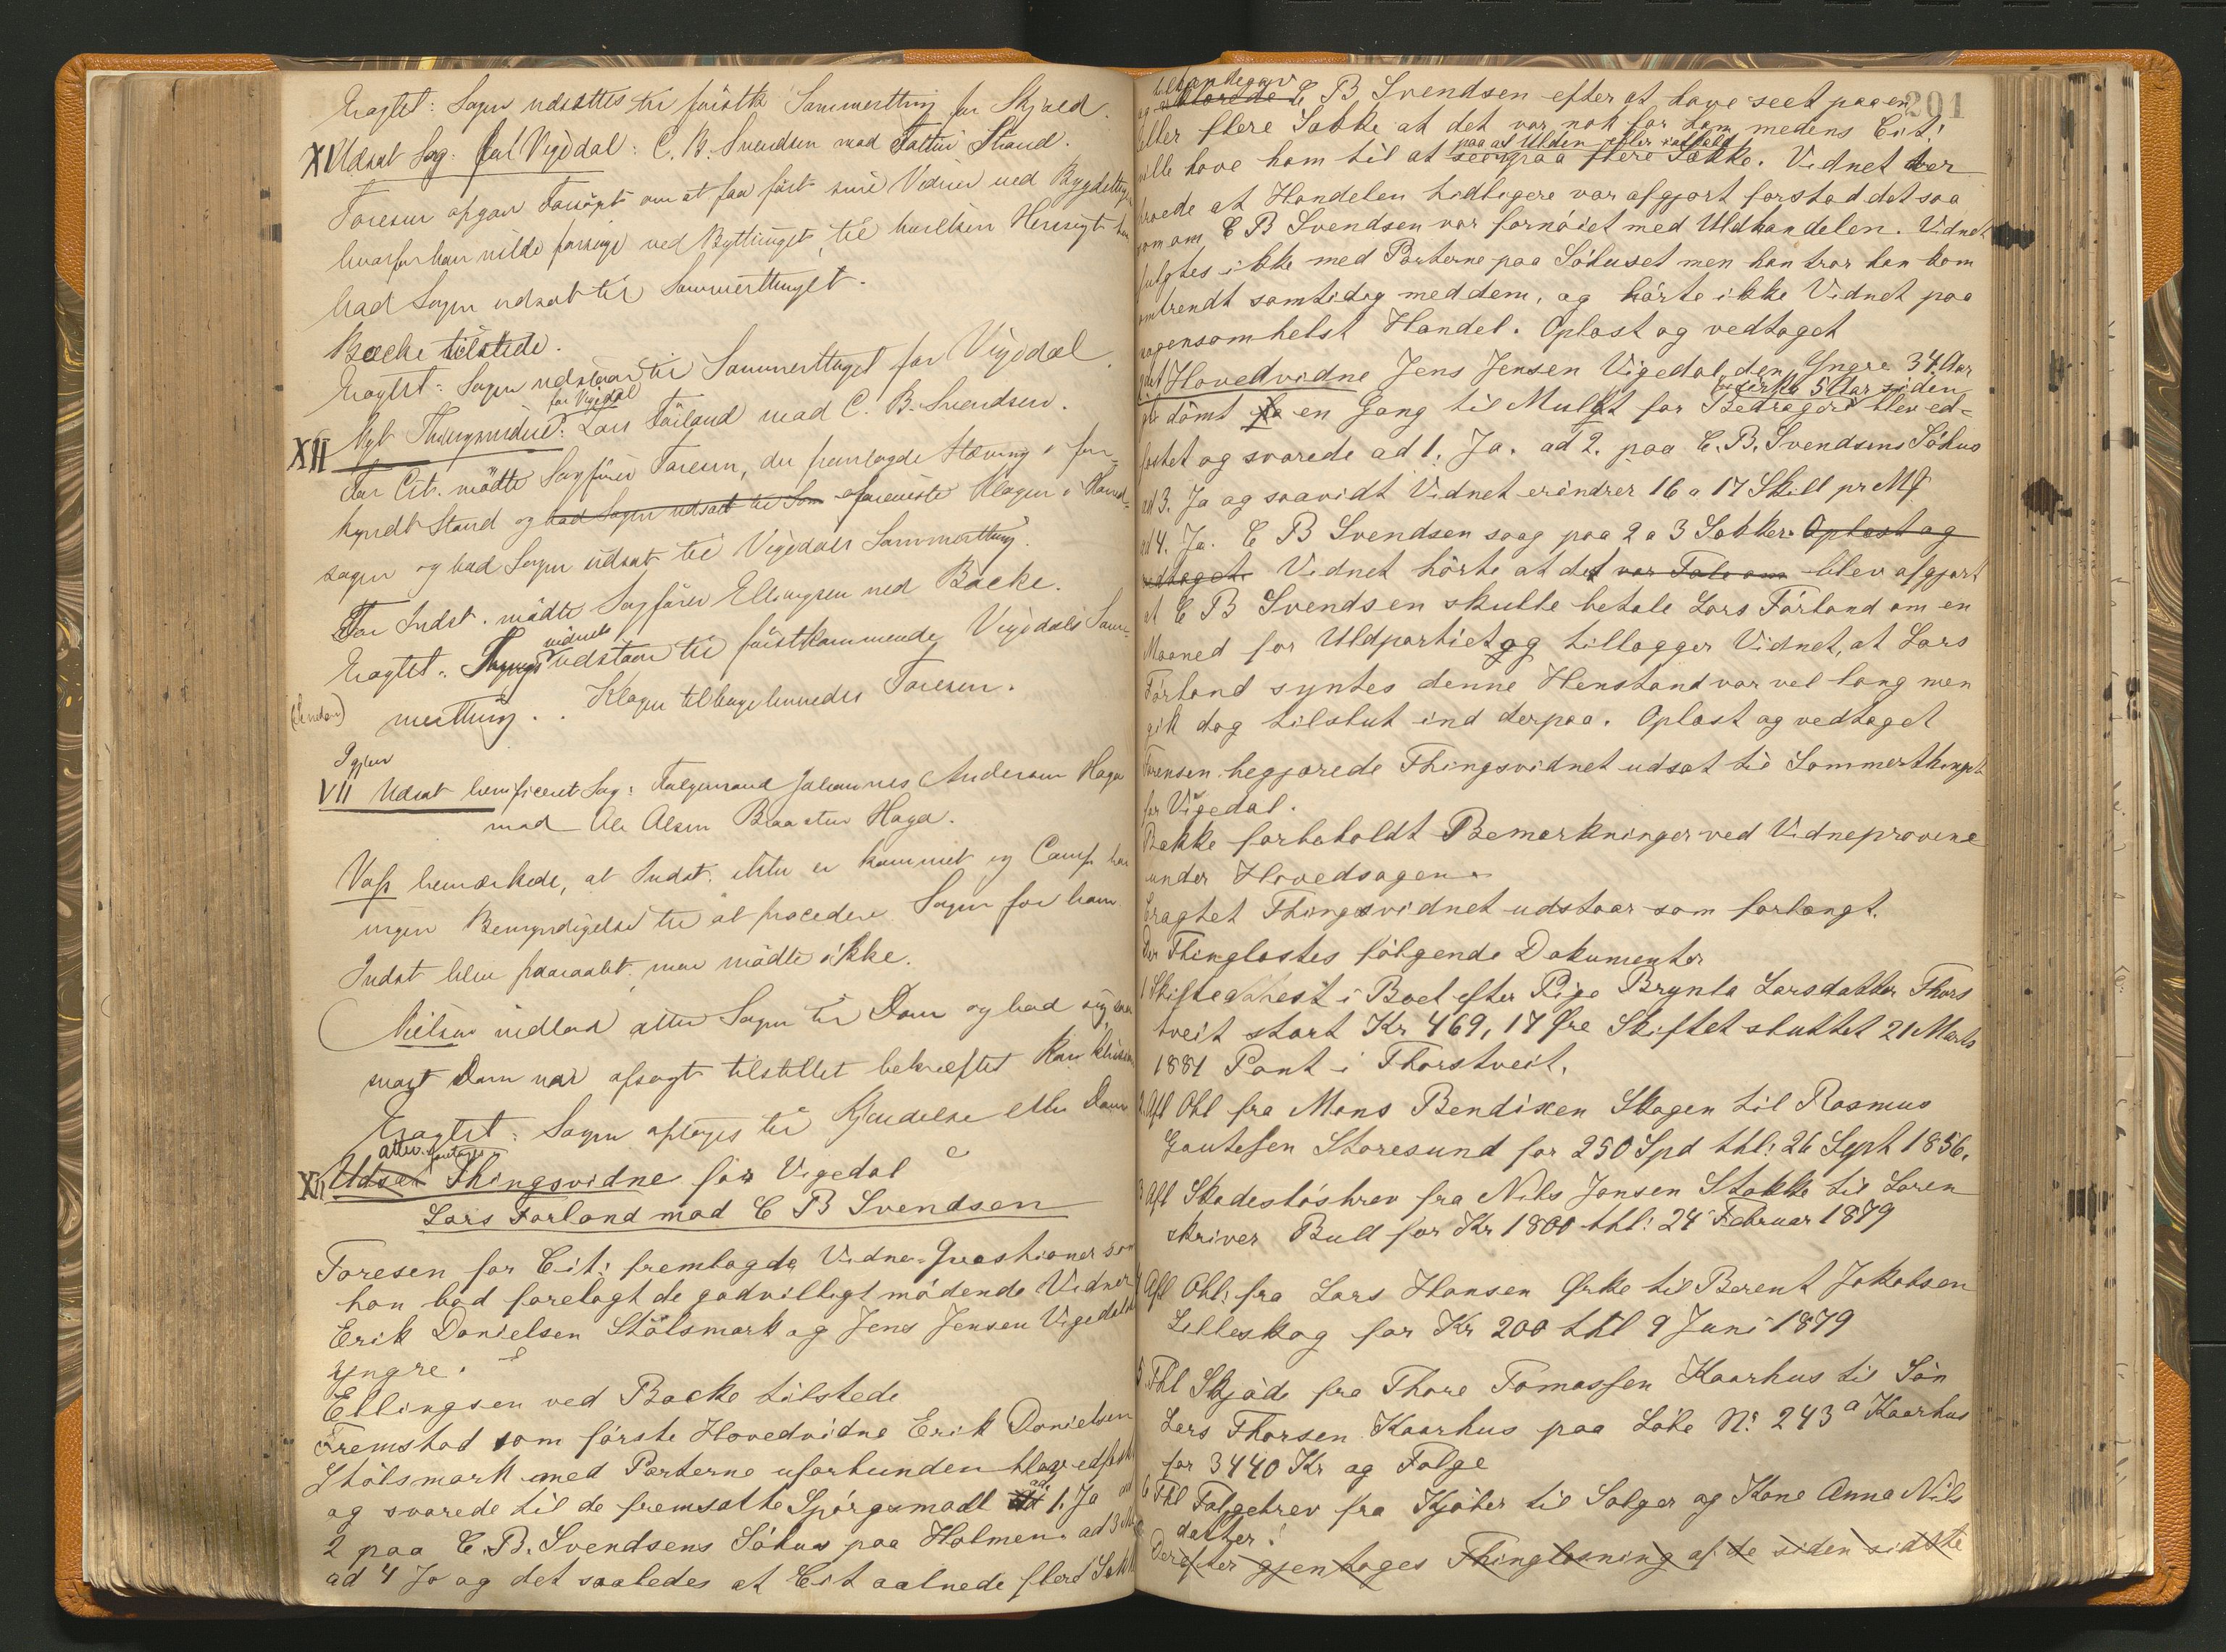 Eragtet: Sagen udsættes til første Sommerthing for Skjold.
XI Udsat Sag: fal Vigedal: C. B. Svendsen mod Strand.
Foresen opgav Forsøgt om at faa ført sine Vidner ved Bygdethinget
hvorfor han vilde forsøge ved Bythinget, til hvilken Hensigt han
bad Sagen udsat til Sommerthinget.
Backe tilstede.
Eragtet: Sagen udstaar til Sommerthinget for Vigedal
for Vigedal
XII Nyt Thingsvidne: Lars Førland mod C. B. Svendsen.
For Cit. mødte Sagfører Foresen, der fremlagde Stævning i for-
kyndt Stand og bad Sagen udsat til Som afæskede Klagen i Hoved-
sagen og bad Sagen udsat til Vigedals Sommerthing.
For Indst. mødte Sagfører Ellingsen ved Backe.
Eragtet: Things vidnet udstaar til førstkommende Vigedals Som-
merthing. Klagen tilbageleveredes Foresen.
Igjen
VII Udsat beneficeret Sag: Følgemand Johannes Andersen Haga
mod Ole Olsen Braaten Haga.
Vass bemærkede, at Indst. ikke er kommet og Comp. har
ingen Bemyndigelse til at procedere Sagen for ham
Indst. blev paaraabt men mødte ikke.
Nielsen indlod atter Sagen til Dom og bad sig
Dom naar afsagt tilstillet bekræftet
Eragtet: Sagen optages til Kjendelse eller Dom
atter foretages
XII Udsat Thingsvidne for Vigedal
Lars Førland mod C B Svendsen
Foresen for Cit: fremlagde Vidne-Qvæstioner som
han bad forelagt de godvilligt mødende Vidner
Erik Danielsen Stølsmark og Jens Jensen Vigedal d
yngre.
Ellingsen ved Backe tilstede
Fremstod som første Hovedvidne Erik Danielsen
Stølsmark med Parterne uforbunden blev edfæstet
og svarede til de fremsatte Spørgsmaal ad 1. Ja ad
2 paa C. B. Svendsens Søhus paa Holmen. ad 3
ad 4 Ja og det saaledes at Cit aabnede flere Sække
201
og C B Svendsen efter at have seet paa en
eller flere Sække at det var nok for ham medens Cit:
paa af Ulden eller ialfald
vilde have ham til at see paa flere Sække. Vidnet der
troede at Handelen tidligere var afgjort forstod det saa
som om C B Svendsen var fornøiet med Uldhandelen. Vidnet
fulgtes ikke med Parterne paa Søhuset men han tror han kom
omtrendt samtidig med dem, og hørte ikke Vidnet paa
nogensomhelst Handel. Oplæst og vedtaget
2det Hovedvidne Jens Jensen Vigedal den Yngre 34 Aar
for cirka 5 Aar siden
dømt en Gang til Mulkt for Bedrageri blev ed-
fæstet og svarede ad 1. Ja. ad 2. paa C. B. Svendsens Søhus
ad 3. Ja og saavidt Vidnet erindrer 16 a 17 Skill pr M
ad 4. Ja. C B Svendsen saag paa 2 a 3 Sækker. Oplæst og
vedtaget. Vidnet hørte at det var Tale om blev afgjort
at C B Svendsen skulle betale Lars Førland om en
Maaned for Uldpartiet og tillægger Vidnet, at Lars
Førland syntes denne Henstand var vel lang men
gik dog tilslut ind derpaa. Oplæst og vedtaget
Foresen begjærede Thingsvidnet udsat til Sommerthinget
for Vigedal.
Bakke forbeholdt Bemærkninger ved Vidneprovene
under Hovedsagen.
Eragtet Thingsvidnet udstaar som forlangt.
Der Thinglæstes følgende Dokumenter
1 Skifteextrakt i Boet efter Pige Brynla Larsdatter Thors
tveit stort Kr 469, 17 Øre Skiftet sluttet 21 Marts
1881 Pant i Thorstveit.
2 Afl Obl fra Mons Bendixen Skogen til Rasmus
Gautesen Storesund for 250 Spd thl: 26 Sept 1856.
3 Afl Skadesløsbrev fra Nils Jansen Stakke til Soren
skriver Bull for Kr 1800 thl: 24 Februar 1879
4 Afl Obl: fra Lars Hansen Ørke til Berent Jakobsen
Lilleskog for Kr 200 thl 9 Juni 1879
5. Thl Skjøde fra Thore Tomassen Kaarhus til Søn
Lars Thorsen Kaarhus paa Løbe No. 243a Kaarhus
for 3440 Kr og Følge
6 Thl Følgebrev fra Kjøber til Sælger og Kone Anna Nils
datter!
Derefter gjentages Thinglæsning af de siden sidste